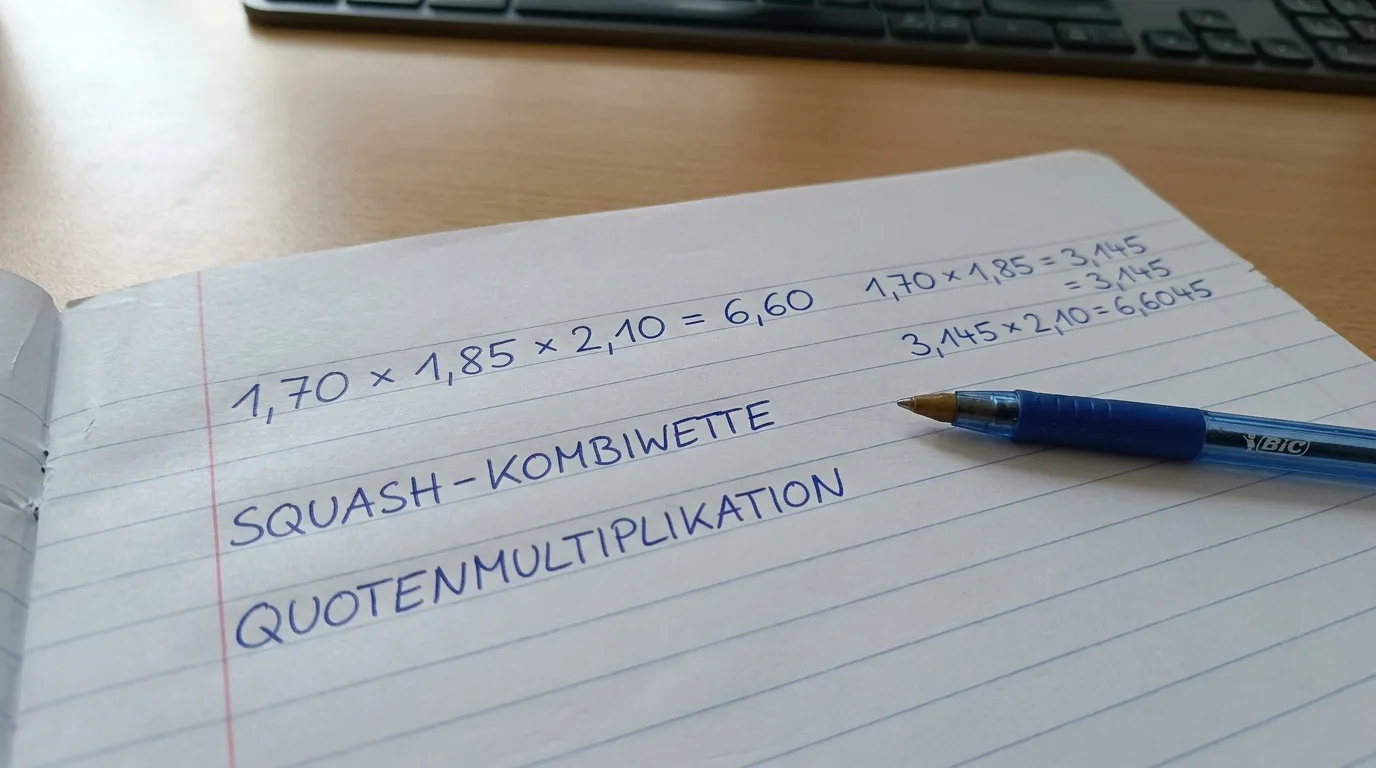 1,70 × 1,85 × 2,10 = 6,60
1,70 × 1,85 = 3,145
= 3,145
3,145 × 2,10 = 6,6045
SQUASH-KOMBIWETTE
QUOTENMULTIPLIKATION
BIC